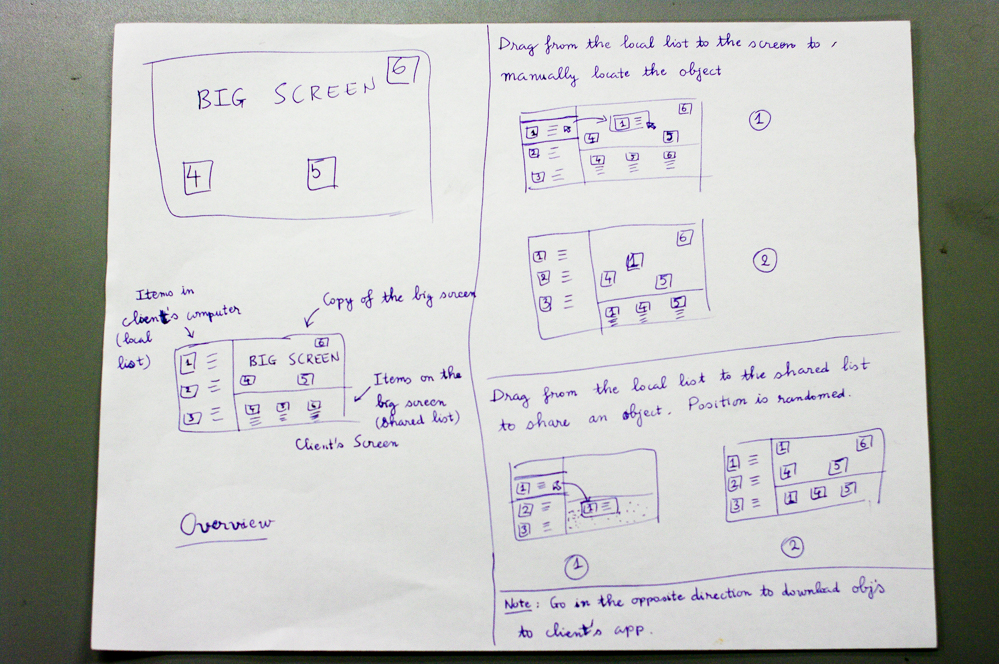 BIG SCREEN
6
4
5
Items in
client's computer
(local
list)
Copy of the big screen
1
2
3
BIG SCREEN
6
4
5
4 5 6
Items on the
big screen
(shared list)
Client's Screen
Overview
Drag from the local list to the screen to
manually locate the object
1
2
3
1
6
4
5
4 5 6
1
1
2
3
6
1
4
5
1 4 5
2
Drag from the local list to the shared list
to share an object. Position is randomed.
1
2
3
1
1
1
2
3
1
6
4
5
1 4 5
2
Note: Go in the opposite direction to download obj's
to client's app.